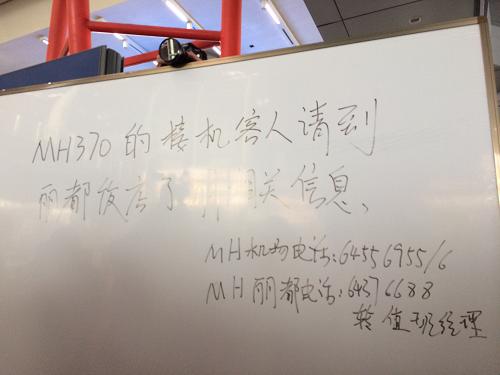 MH370的接机客人请到
丽都饭店了解相关信息、
MH机场电话:64556955/6
MH丽都电话:64376688
转值班经理